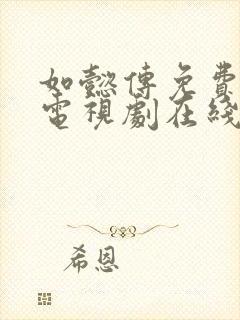 如懿傳免費
電視劇在綫
希恩